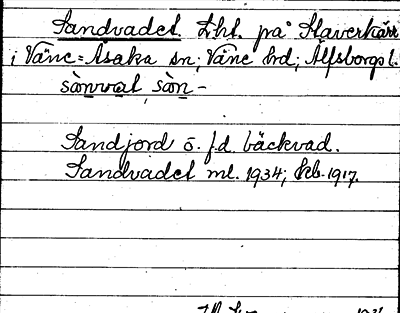 Sandvadet Lht. på Haverkärr
i Väne-Åsaka sn; Väne hd; Älfsborgs l.
sànvat, sàn-
Sandjord ö. f.d. bäckvad.
Sandvadet ml. 1934; kb. 1917.